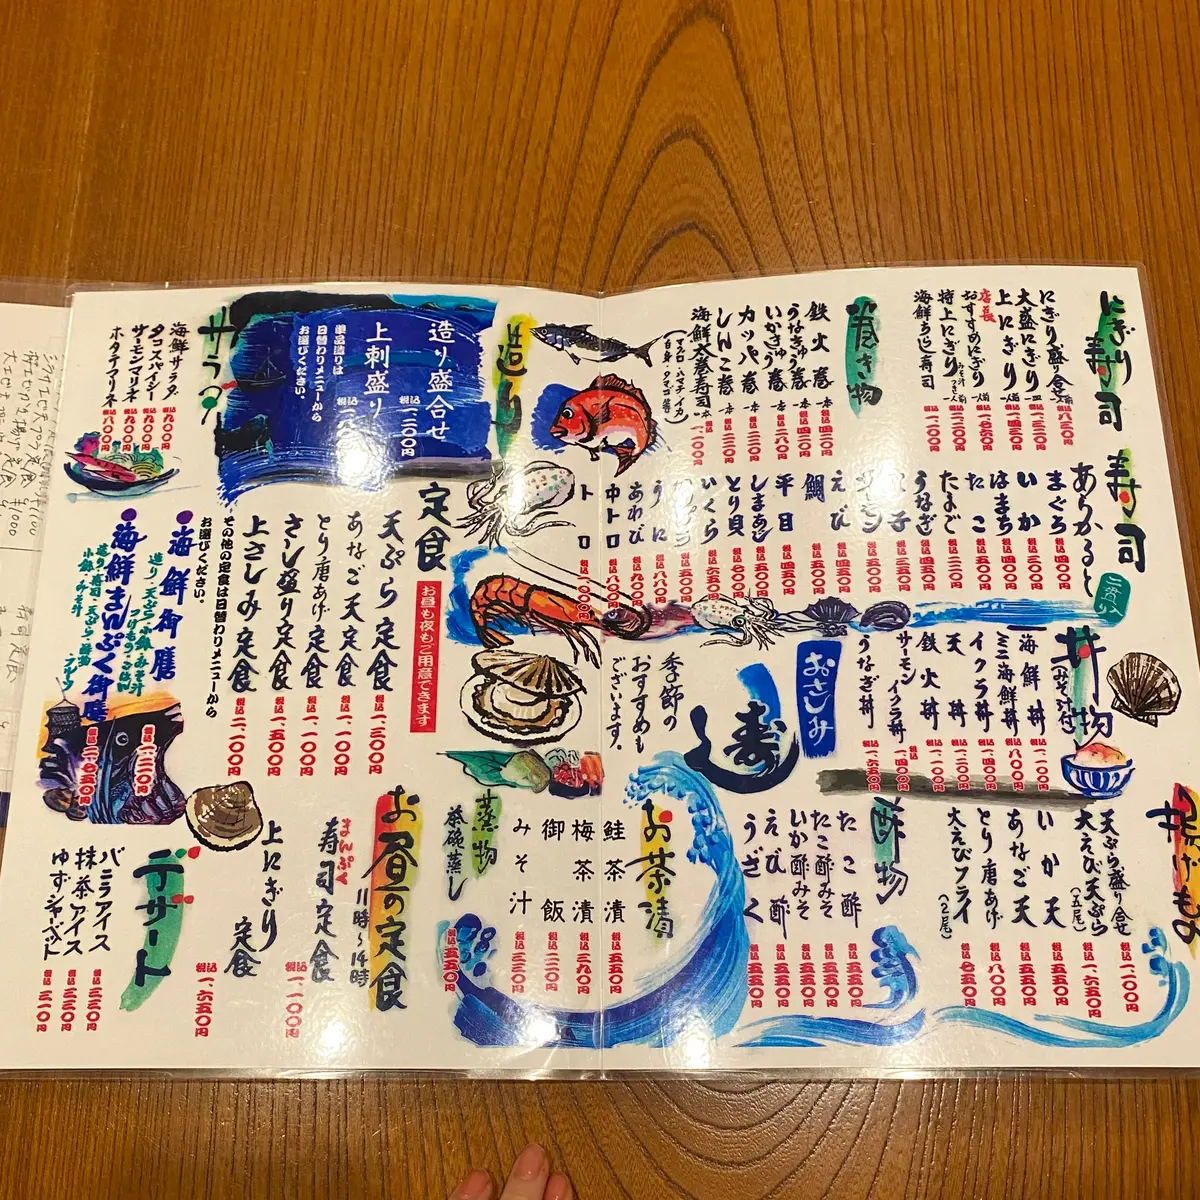 にぎり寿司
にぎり盛り合せ 一人前 税込八三〇円
大盛にぎり 一皿 税込一、三二〇円
上にぎり 一人前 税込一、四三〇円
店長おすすめにぎり 一人前
特上にぎり みそ汁つき 税込二、二〇〇円
海鮮ちらし寿司 税込一、一〇〇円
巻き物
鉄火巻 一本 税込四二〇円
うなきゅう巻 一本 税込四二〇円
いかきゅう巻 一本 税込二八〇円
カッパ巻 一本 税込二二〇円
しんこ巻 一本 税込二二〇円
海鮮太巻寿司 一本 税込一、一〇〇円
(マグロ・ハマチ・イカ 白身・タマゴ 等)
寿司
あらかると
二貫入り
まぐろ 税込四四〇円
いか
はまち 税込四四〇円
たこ 税込五〇〇円
たまご 税込二二〇円
うなぎ 税込五五〇円
えび 税込五五〇円
鯛
平目 税込四五〇円
しまあじ 税込五五〇円
とり貝 税込七〇〇円
いくら 税込六五〇円
うに 税込八八〇円
あわび 税込九〇〇円
中トロ 税込八八〇円
トロ 税込一、〇〇〇円
丼物
(みそ汁付)
海鮮丼 税込一、一〇〇円
ミニ海鮮丼 税込八八〇円
イクラ丼 税込一、四三〇円
天丼 税込一、一〇〇円
鉄火丼 税込一、一〇〇円
サーモンイクラ丼 税込一、四〇〇円
うなぎ丼 税込一、六五〇円
おさしみ
季節の
おすすめも
ございます。
寿
揚げもの
天ぷら盛り合せ 税込一、一〇〇円
大えび天ぷら(五尾) 税込一、六五〇円
いか天 税込五五〇円
あなご天 税込五五〇円
とり唐あげ 税込八八〇円
大えびフライ(2尾) 税込七五〇円
酢物
たこ酢 税込五五〇円
たこ酢みそ 税込五五〇円
いか酢みそ 税込五五〇円
えび酢 税込五五〇円
うざく 税込五五〇円
お茶漬
鮭茶漬 税込五五〇円
梅茶漬 税込三九〇円
御飯 税込二二〇円
みそ汁 税込二二〇円
蒸物
茶碗蒸し 税込五五〇円
造り
造り盛合せ 税込一、二〇〇円
上刺盛り
単品造りは
日替わりメニューから
お選びください。
サラダ
海鮮サラダ 税込九〇〇円
タコスパイシー 税込九〇〇円
サーモンマリネ 税込九〇〇円
ホタテマリネ 税込九〇〇円
定食
お昼も夜もご用意できます
天ぷら定食 税込一、三〇〇円
あなご天定食 税込一、一〇〇円
とり唐あげ定食 税込一、一〇〇円
さし盛り定食 税込一、五〇〇円
上さしみ定食 税込二、一〇〇円
その他の定食は日替わりメニューから
お選びください。
●海鮮御膳
造り・天ぷら・小鉢・みそ汁
つけもの・ご飯
税込一、二〇円
●海鮮まんぷく御膳
造り・寿司・天ぷら・茶碗
小鉢・みそ汁
フルーツ
税込二、〇五〇円
お昼の定食
11時〜14時
まんぷく
寿司定食 税込一、一〇〇円
上にぎり定食 税込一、六五〇円
デザート
バニラアイス 税込三三〇円
抹茶アイス 税込三三〇円
ゆずシャーベット 税込三一〇円